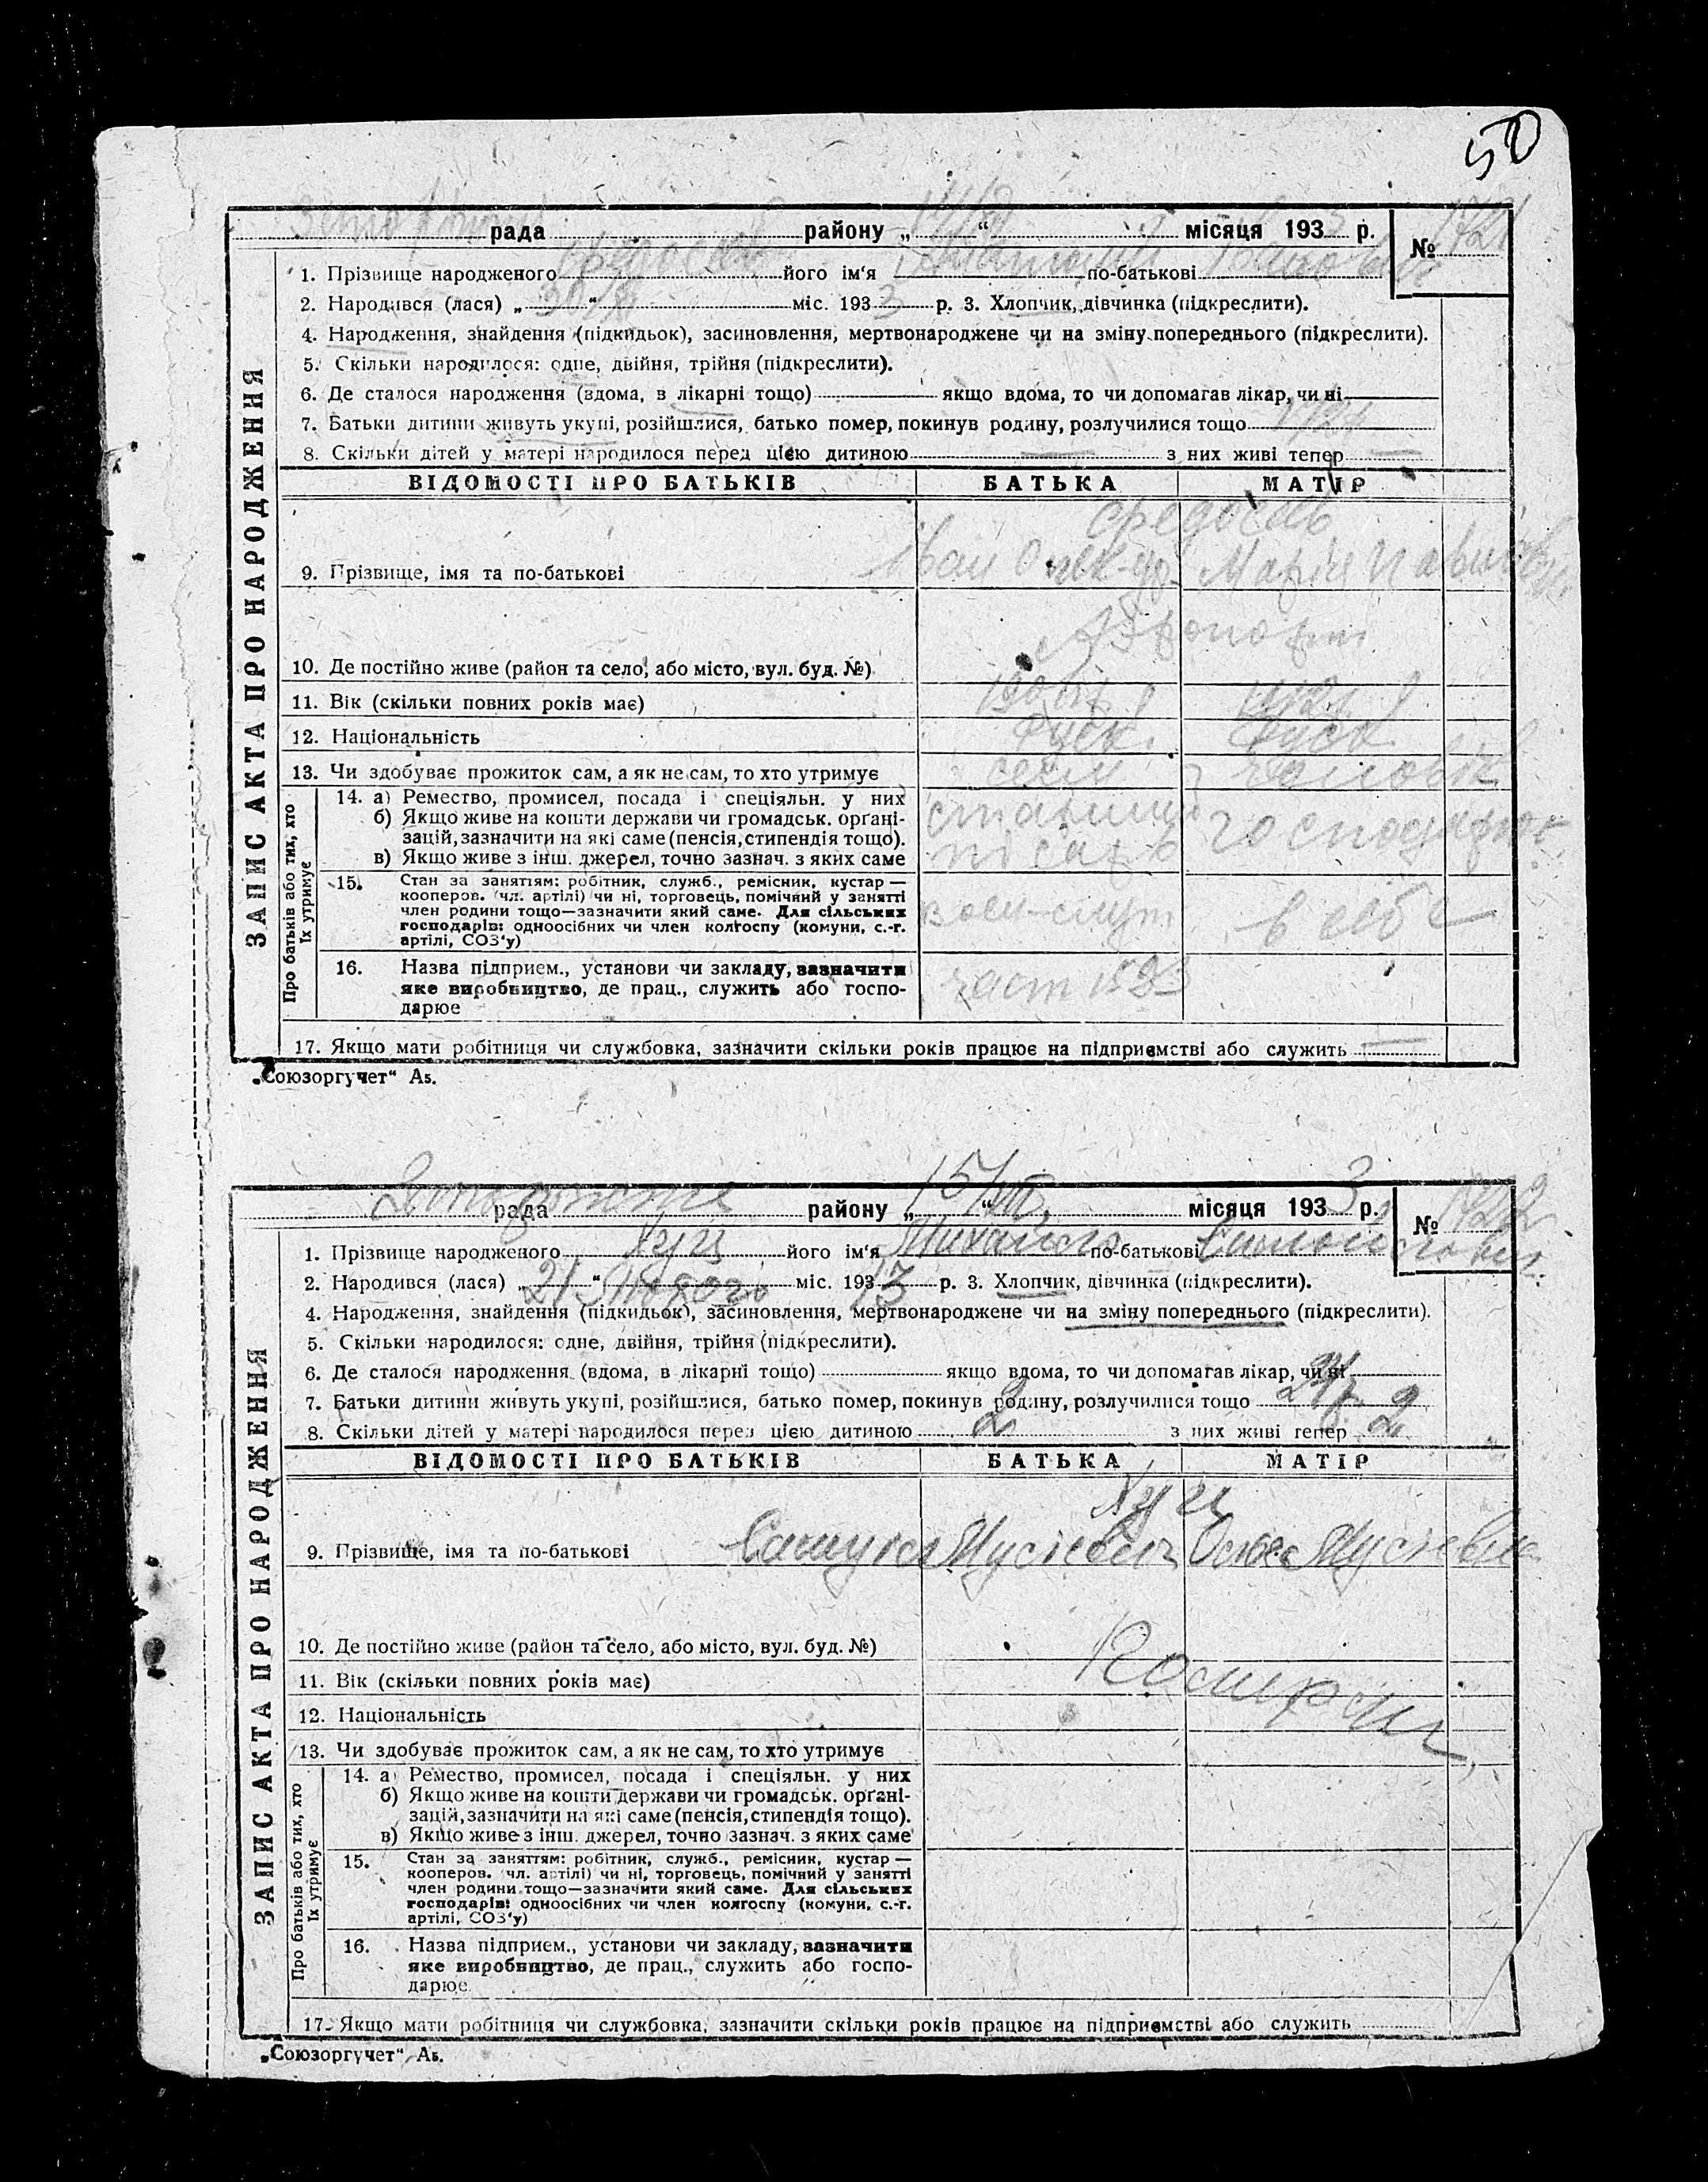 50
рада району „ “ місяця 193 3 р. № 1721
1. Прізвище народженого його ім‘я по-батькові
2. Народився (лася) „ “ міс. 193 3 р. 3. Хлопчик, дівчинка (підкреслити).
4. Народження, знайдення (підкидьок), засиновлення, мертвонароджене чи на зміну попереднього (підкреслити).
5. Скільки народилося: одне, двійня, трійня (підкреслити).
6. Де сталося народження (вдома, в лікарні тощо) якщо вдома, то чи допомагав лікар, чи ні
7. Батьки дитини живуть укупі, розійшлися, батько помер, покинув родину, розлучилися тощо
8. Скільки дітей у матері народилося перед цією дитиною — з них живі тепер —
ВІДОМОСТІ ПРО БАТЬКІВ БАТЬКА МАТІР
9. Прізвище, імя та по-батькові Іван Марія
10. Де постійно живе (район та село, або місто, вул. буд. №)
11. Вік (скільки повних років має)
12. Національність руск. руск.
13. Чи здобуває прожиток сам, а як не сам, то хто утримує
14. а) Ремество, промисел, посада і спеціяльн. у них
б) Якщо живе на кошти держави чи громадськ. орґані-
зацій, зазначити на які саме (пенсія, стипендія тощо).
в) Якщо живе з інш. джерел, точно зазнач. з яких саме
15. Стан за заняттям: робітник, служб., ремісник, кустар —
кооперов. (чл. артілі) чи ні, торговець, помічний у занятті
член родини тощо—зазначити який саме. Для сільських
господарів: одноосібних чи член колгоспу (комуни, с.-г.
артілі, СОЗ‘у)
16. Назва підприєм., установи чи закладу, зазначити
яке виробництво, де прац., служить або госпо-
дарює
17. Якщо мати робітниця чи службовка, зазначити скільки років працює на підприємстві або служить —
ЗАПИС АКТА ПРО НАРОДЖЕННЯ
Про батьків або тих, хто
їх утримує
„Союзоргучет“ А5.
рада району „ 15/VIII “ місяця 193 3 р. № 1722
1. Прізвище народженого Хуц його ім‘я Михайло по-батькові
2. Народився (лася) „ 21 “ міс. 193 13 р. 3. Хлопчик, дівчинка (підкреслити).
4. Народження, знайдення (підкидьок), засиновлення, мертвонароджене чи на зміну попереднього (підкреслити).
5. Скільки народилося: одне, двійня, трійня (підкреслити).
6. Де сталося народження (вдома, в лікарні тощо) якщо вдома, то чи допомагав лікар, чи ні
7. Батьки дитини живуть укупі, розійшлися, батько помер, покинув родину, розлучилися тощо
8. Скільки дітей у матері народилося перед цією дитиною 2 з них живі тепер 2
ВІДОМОСТІ ПРО БАТЬКІВ БАТЬКА МАТІР
Хуц
9. Прізвище, імя та по-батькові
10. Де постійно живе (район та село, або місто, вул. буд. №)
11. Вік (скільки повних років має)
12. Національність
13. Чи здобуває прожиток сам, а як не сам, то хто утримує
14. а) Ремество, промисел, посада і спеціяльн. у них
б) Якщо живе на кошти держави чи громадськ. орґані-
зацій, зазначити на які саме (пенсія, стипендія тощо).
в) Якщо живе з інш. джерел, точно зазнач. з яких саме
15. Стан за заняттям: робітник, служб., ремісник, кустар —
кооперов. чл. артілі) чи ні, торговець, помічний у занятті
член родини тощо—зазначити який саме. Для сільських
господарів: одноосібних чи член колгоспу (комуни, с.-г.
артілі, СОЗ‘у)
16. Назва підприєм., установи чи закладу, зазначити
яке виробництво, де прац., служить або госпо-
дарює
17. Якщо мати робітниця чи службовка, зазначити скільки років працює на підприємстві або служить
ЗАПИС АКТА ПРО НАРОДЖЕННЯ
Про батьків або тих, хто
їх утримує
„Союзоргучет“ А5.